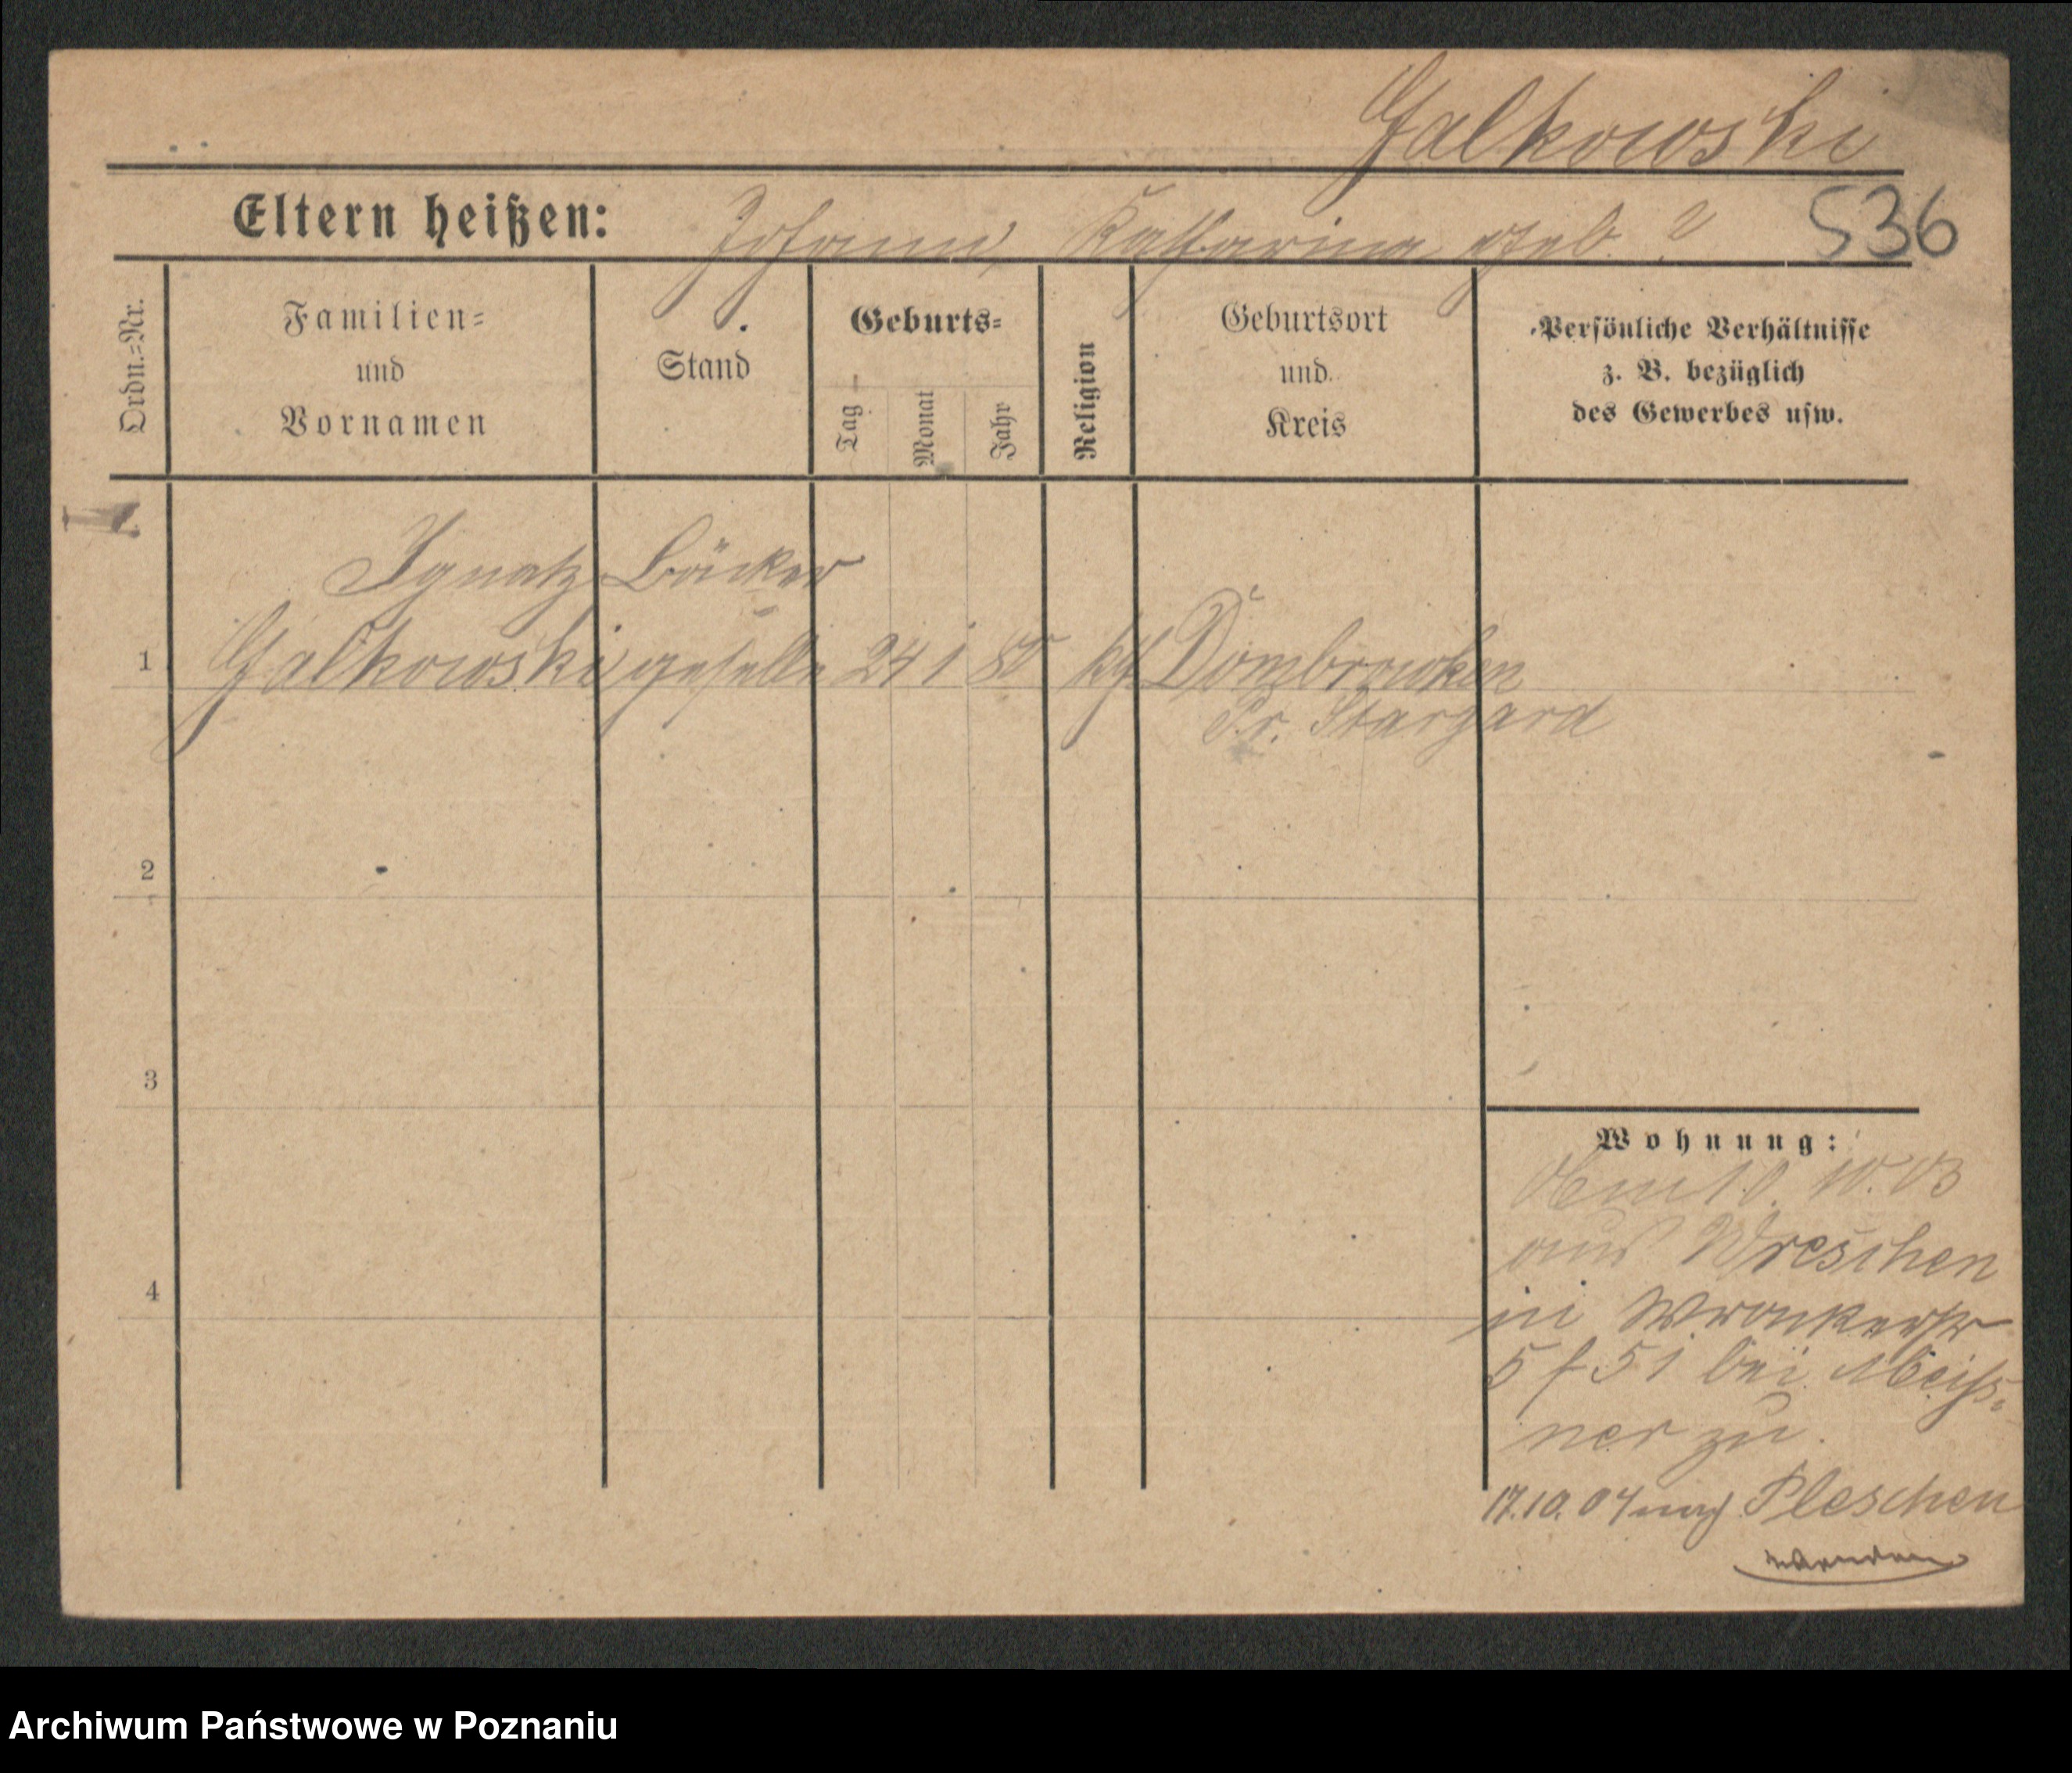 Galkowski
Eltern heißen: Johann, Katharina geb. ?
536
Ordn.=Nr.
Familien=
und
Vornamen
Stand
Geburts=
Tag
Monat
Jahr
Religion
Geburtsort
und
Kreis
Persönliche Verhältnisse
z. B. bezüglich
des Gewerbes usw.
Ignatz Bäcker
1 Galkowski geselle 24 1 80 kth Dombrowken
Pr. Stargard
2
3
4
Wohnung:
10. 10. 03
aus Wreschen
in Wronkerstr
5 f 51 bei Meiss-
ner zu.
17.10.04 nach Pleschen
Archiwum Państwowe w Poznaniu